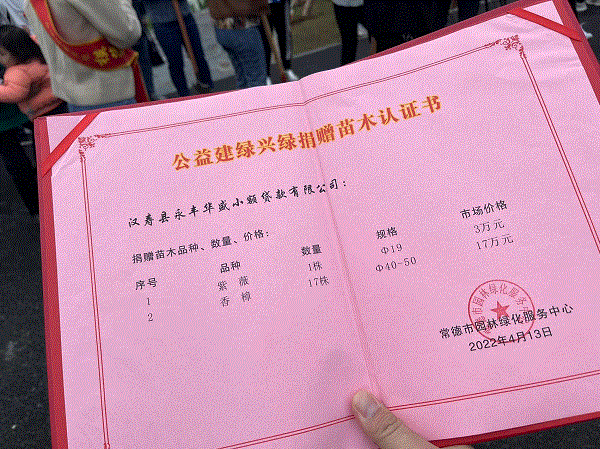 公益建绿兴绿捐赠苗木认证书
汉寿县永丰华盛小额贷款有限公司：
捐赠苗木品种、数量、价格：
序号 品种 数量 规格 市场价格
1 紫薇 1株 Φ19 3万元
2 香樟 17株 Φ40-50 17万元
常德市园林绿化服务中心
2022年4月13日
常德市园林绿化服务中心